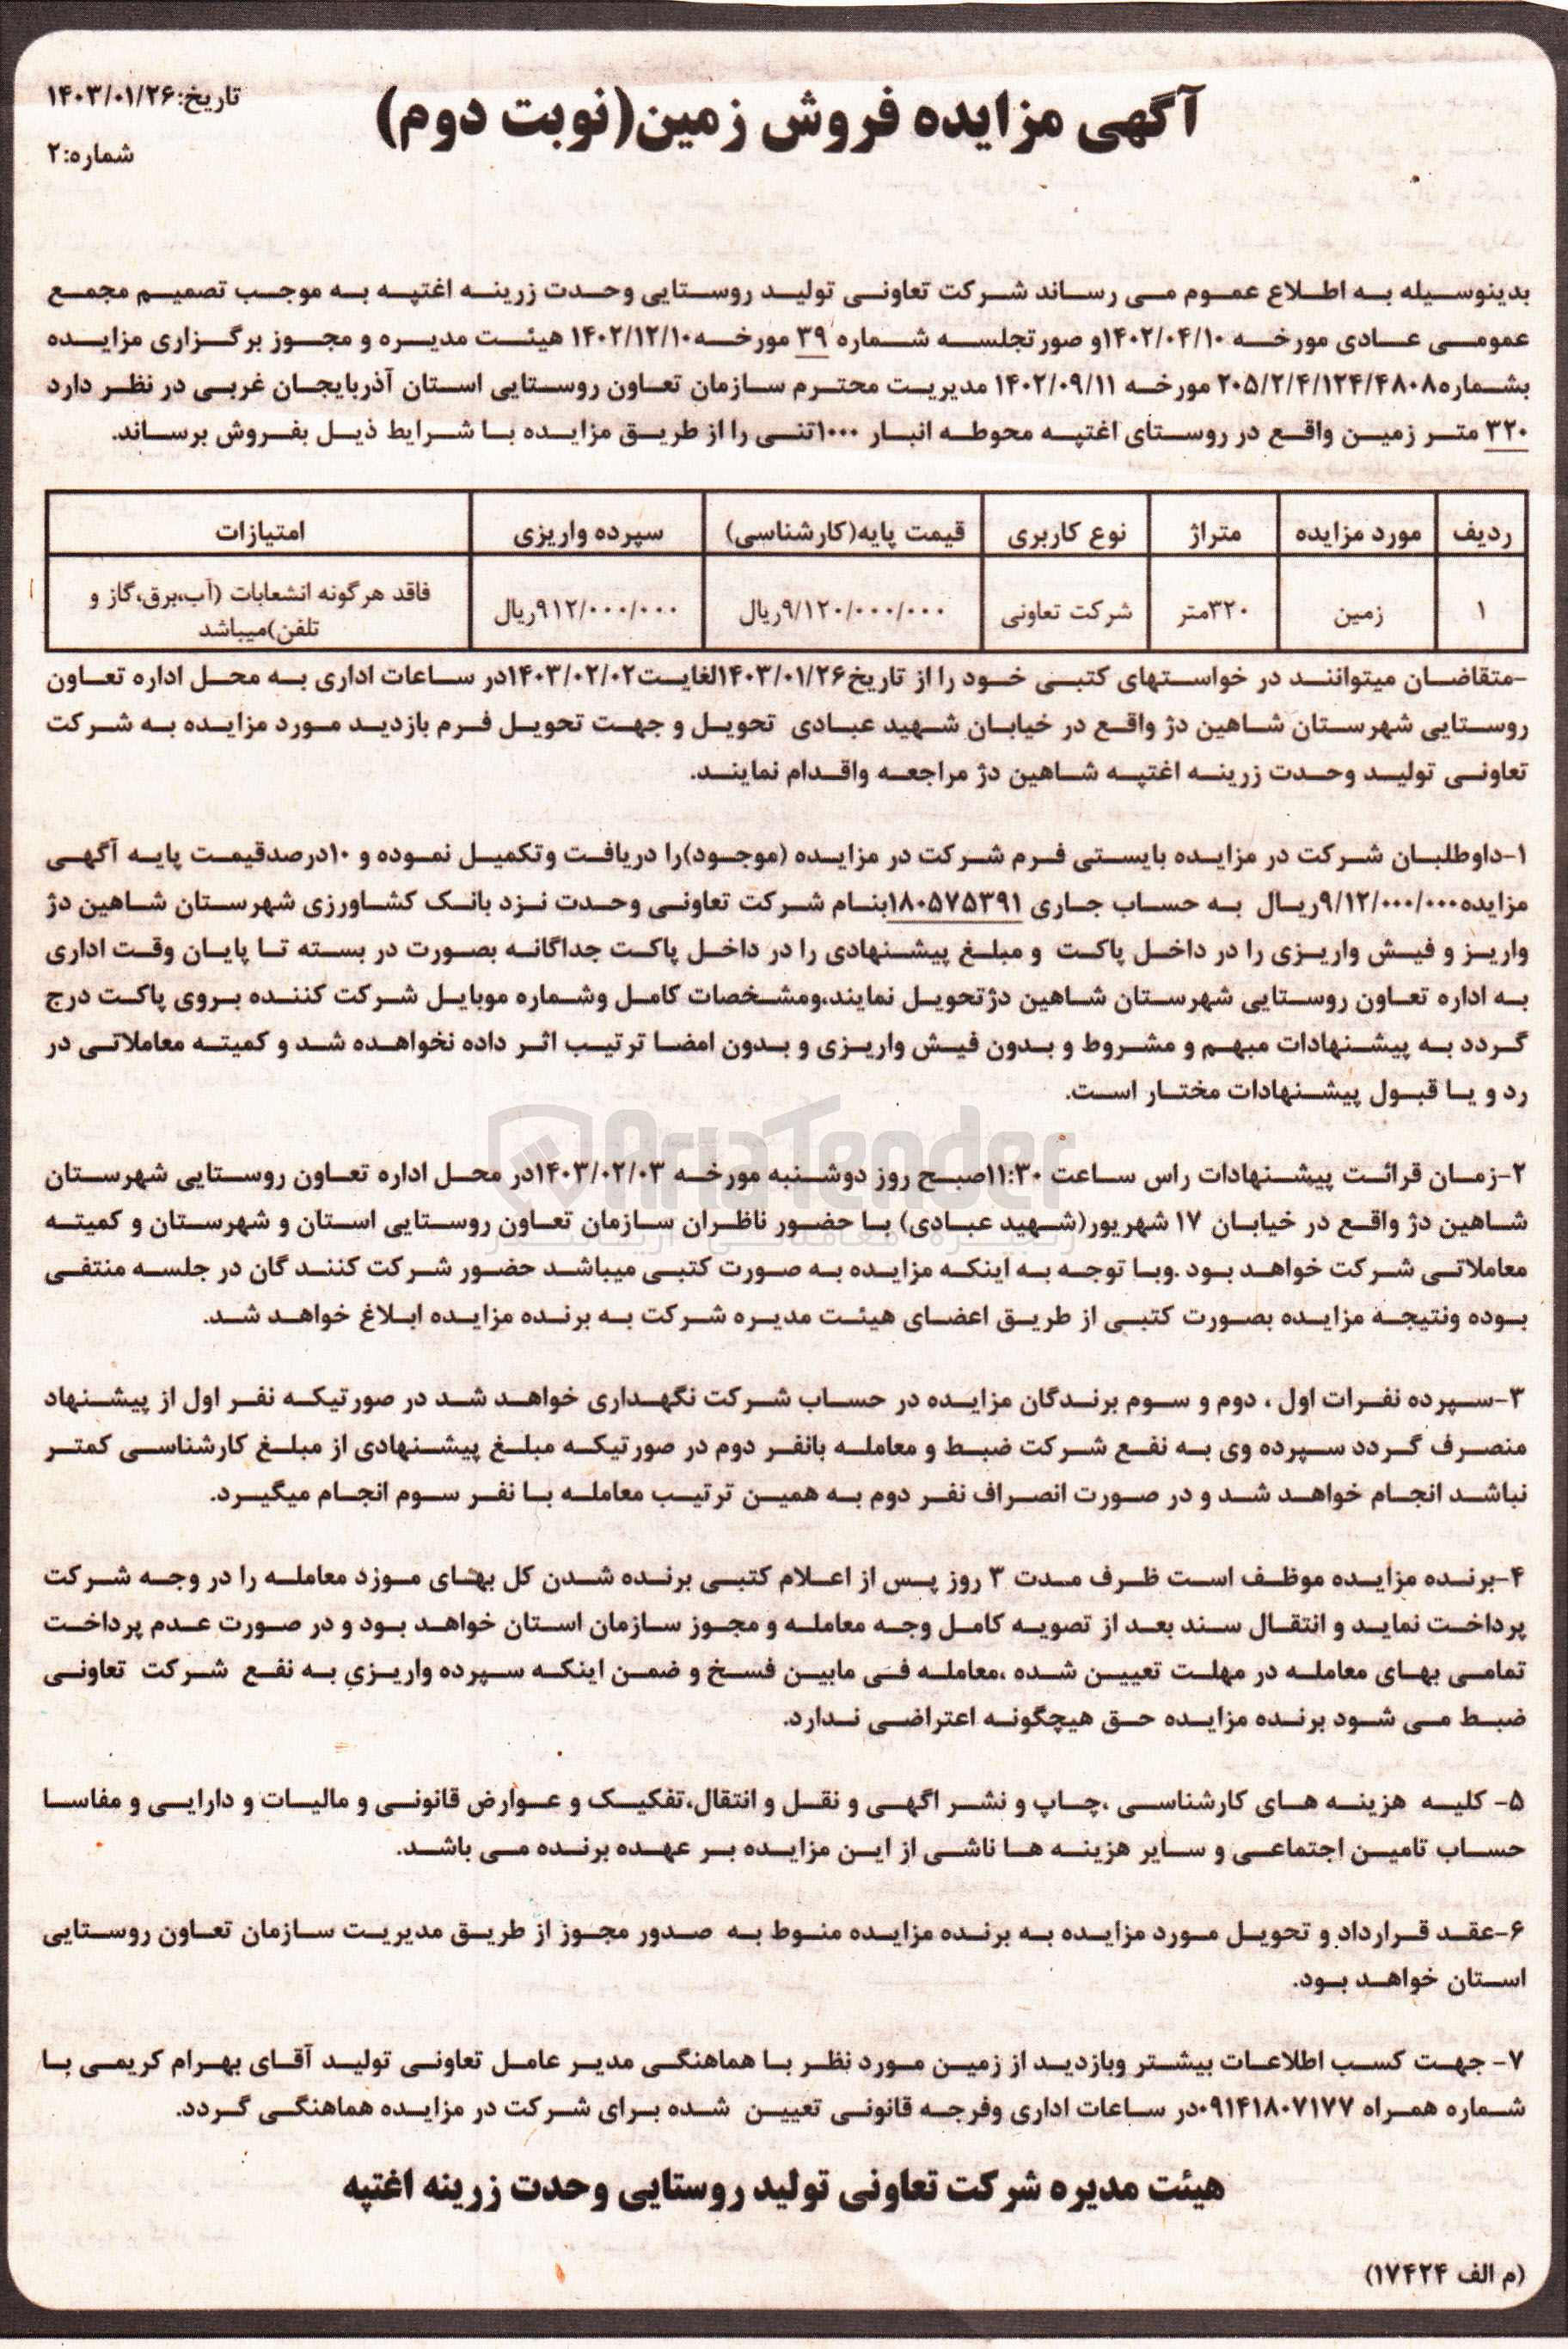 آگهی مزایده فروش زمین(نوبت دوم)
تاریخ:۱۴۰۳/۰۱/۲۶
شماره:۲
بدینوسیله به اطلاع عموم می رساند شرکت تعاونی تولید روستایی وحدت زرینه اغتپه به موجب تصمیم مجمع
عمومی عادی مورخه ۱۴۰۲/۰۴/۱۰و صورتجلسه شماره ۳۹ مورخه۱۴۰۲/۱۲/۱۰ هیئت مدیره و مجوز برگزاری مزایده
بشماره۲۰۵/۲/۴/۱۲۴/۴۸۰۸ مورخه ۱۴۰۲/۰۹/۱۱ مدیریت محترم سازمان تعاون روستایی استان آذربایجان غربی در نظر دارد
۳۲۰ متر زمین واقع در روستای اغتپه محوطه انبار ۱۰۰۰تنی را از طریق مزایده با شرایط ذیل بفروش برساند.
ردیف مورد مزایده متراژ نوع کاربری قیمت پایه(کارشناسی) سپرده واریزی امتیازات
۱ زمین ۳۲۰متر شرکت تعاونی ۹/۱۲۰/۰۰۰/۰۰۰ریال ۹۱۲/۰۰۰/۰۰۰ریال فاقد هرگونه انشعابات (آب،برق،گاز و
تلفن)میباشد
-متقاضان میتوانند در خواستهای کتبی خود را از تاریخ۱۴۰۳/۰۱/۲۶لغایت۱۴۰۳/۰۲/۰۲در ساعات اداری به محل اداره تعاون
روستایی شهرستان شاهین دژ واقع در خیابان شهید عبادی تحویل و جهت تحویل فرم بازدید مورد مزایده به شرکت
تعاونی تولید وحدت زرینه اغتپه شاهین دژ مراجعه واقدام نمایند.
۱-داوطلبان شرکت در مزایده بایستی فرم شرکت در مزایده (موجود)را دریافت وتکمیل نموده و ۱۰درصدقیمت پایه آگهی
مزایده۹/۱۲/۰۰۰/۰۰۰ریال به حساب جاری ۱۸۰۵۷۵۳۹۱بنام شرکت تعاونی وحدت نزد بانک کشاورزی شهرستان شاهین دژ
واریز و فیش واریزی را در داخل پاکت و مبلغ پیشنهادی را در داخل پاکت جداگانه بصورت در بسته تا پایان وقت اداری
به اداره تعاون روستایی شهرستان شاهین دژتحویل نمایند،ومشخصات کامل وشماره موبایل شرکت کننده بروی پاکت درج
گردد به پیشنهادات مبهم و مشروط و بدون فیش واریزی و بدون امضا ترتیب اثر داده نخواهده شد و کمیته معاملاتی در
رد و یا قبول پیشنهادات مختار است.
AriaTender
۲-زمان قرائت پیشنهادات راس ساعت ۱۱:۳۰صبح روز دوشنبه مورخه ۱۴۰۳/۰۲/۰۳در محل اداره تعاون روستایی شهرستان
شاهین دژ واقع در خیابان ۱۷ شهریور(شهید عبادی) با حضور ناظران سازمان تعاون روستایی استان و شهرستان و کمیته
معاملاتی شرکت خواهد بود .وبا توجه به اینکه مزایده به صورت کتبی میباشد حضور شرکت کنند گان در جلسه منتفی
بوده ونتیجه مزایده بصورت کتبی از طریق اعضای هیئت مدیره شرکت به برنده مزایده ابلاغ خواهد شد.
۳-سپرده نفرات اول ، دوم و سوم برندگان مزایده در حساب شرکت نگهداری خواهد شد در صورتیکه نفر اول از پیشنهاد
منصرف گردد سپرده وی به نفع شرکت ضبط و معامله بانفر دوم در صورتیکه مبلغ پیشنهادی از مبلغ کارشناسی کمتر
نباشد انجام خواهد شد و در صورت انصراف نفر دوم به همین ترتیب معامله با نفر سوم انجام میگیرد.
۴-برنده مزایده موظف است ظرف مدت ۳ روز پس از اعلام کتبی برنده شدن کل بهای موزد معامله را در وجه شرکت
پرداخت نماید و انتقال سند بعد از تصویه کامل وجه معامله و مجوز سازمان استان خواهد بود و در صورت عدم پرداخت
تمامی بهای معامله در مهلت تعیین شده ،معامله فی مابین فسخ و ضمن اینکه سپرده واریزی به نفع شرکت تعاونی
ضبط می شود برنده مزایده حق هیچگونه اعتراضی ندارد.
۵- کلیه هزینه های کارشناسی ،چاپ و نشر اگهی و نقل و انتقال،تفکیک و عوارض قانونی و مالیات و دارایی و مفاسا
حساب تامین اجتماعی و سایر هزینه ها ناشی از این مزایده بر عهده برنده می باشد.
۶-عقد قرارداد و تحویل مورد مزایده به برنده مزایده منوط به صدور مجوز از طریق مدیریت سازمان تعاون روستایی
استان خواهد بود.
۷- جهت کسب اطلاعات بیشتر وبازدید از زمین مورد نظر با هماهنگی مدیر عامل تعاونی تولید آقای بهرام کریمی با
شماره همراه ۰۹۱۴۱۸۰۷۱۷۷در ساعات اداری وفرجه قانونی تعیین شده برای شرکت در مزایده هماهنگی گردد.
هیئت مدیره شرکت تعاونی تولید روستایی وحدت زرینه اغتپه
(م الف ۱۷۴۲۴)